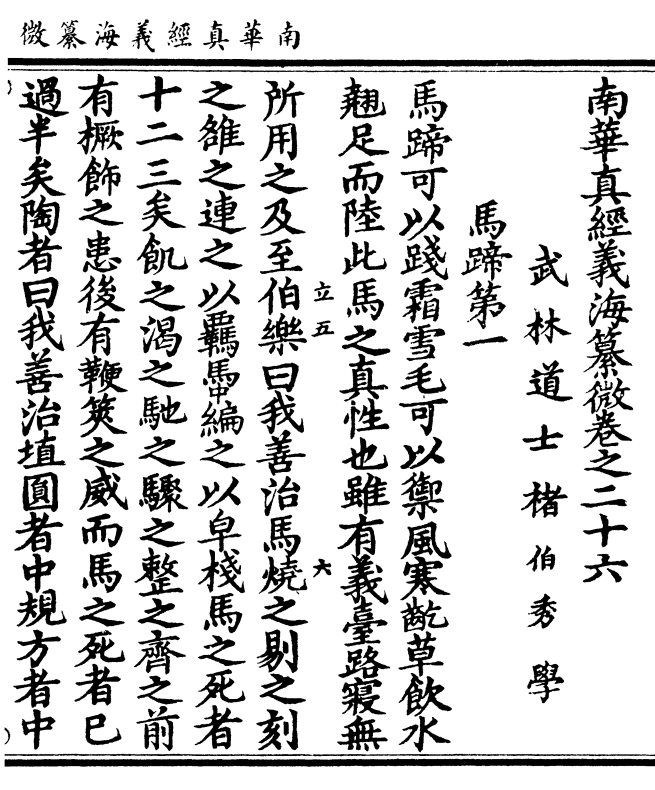 南華真經義海纂微
南華真經義海纂微卷之二十六
武林道士楮伯秀學
馬蹄第一
馬蹄可以踐霜雪毛可以禦風寒齕草飲水
翹足而陸此馬之真性也雖有義臺路寢無
立五
六
所用之及至伯樂曰我善治馬燒之剔之刻
之雒之連之以羈馽編之以皁棧馬之死者
十二三矣飢之渴之馳之驟之整之齊之前
有橛飾之患後有鞭筴之威而馬之死者已
過半矣陶者曰我善治埴圓者中規方者中